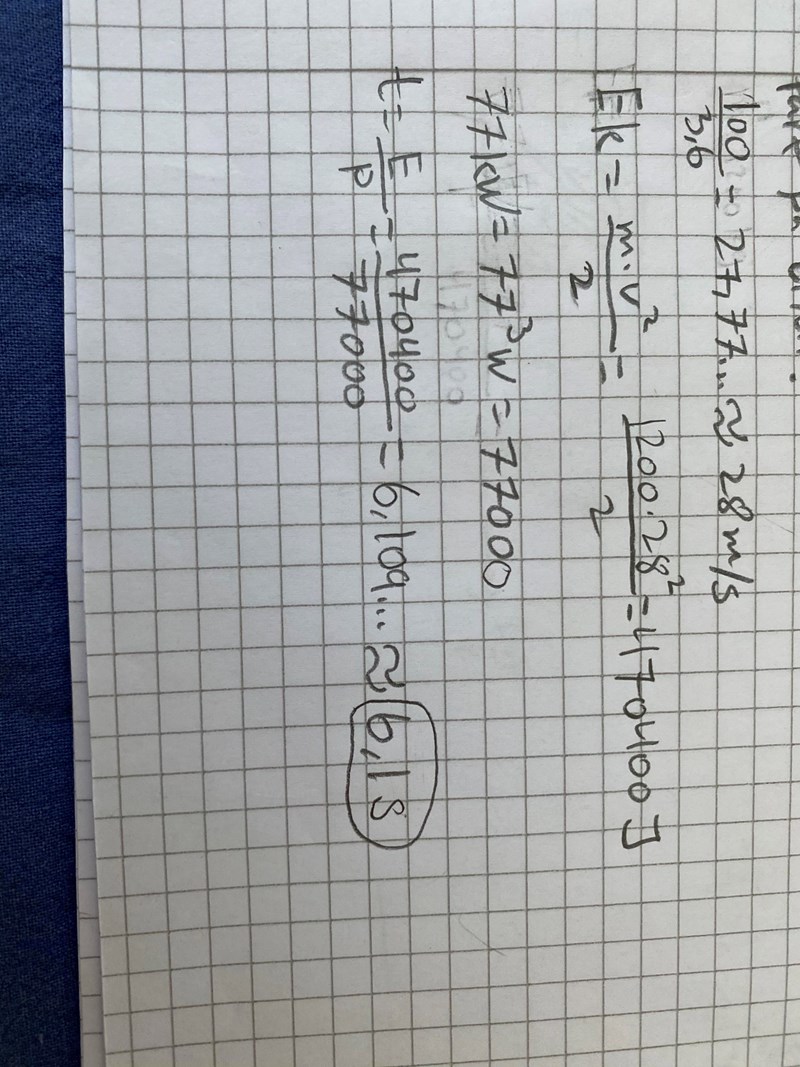 på
100/3,6 = 27,77... ≈ 28 m/s
Ek = m·v²/2 = 1200·28²/2 = 470400 J
77kW = 77³W = 77000
t = E/P = 470400/77000 = 6,109... ≈ 6,1 s